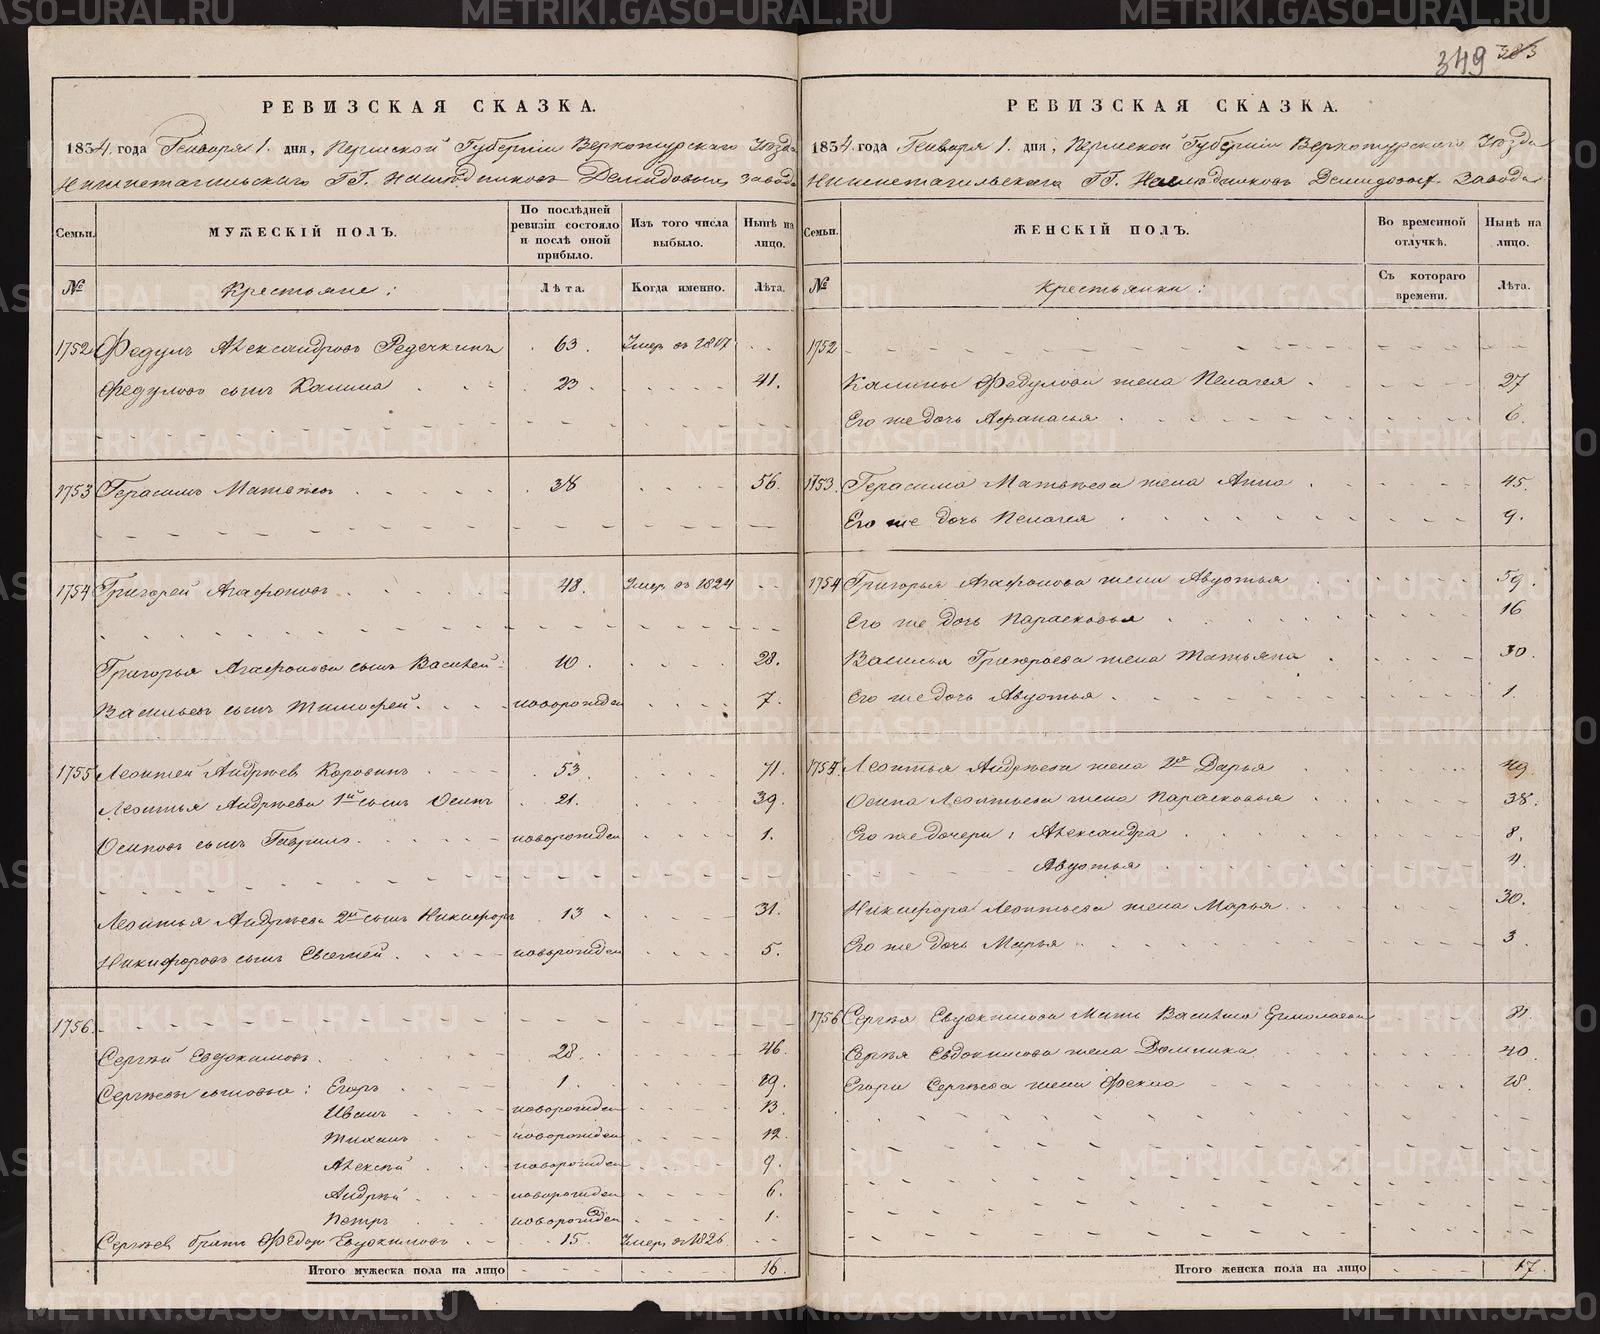 349 383
РЕВИЗСКАЯ СКАЗКА.
1834 года Генваря 1. дня, Пермской Губернии Верхотурского Уезда
Нижнетагильского ГГ. Наследниковъ Демидовыхъ завода
Семьи. МУЖЕСКІЙ ПОЛЪ. По послѣдней ревизіи состояло и послѣ оной прибыло. Изъ того числа выбыло. Нынѣ на лицо.
№ Крестьяне: Лѣта. Когда именно. Лѣта.
1752 Федулъ Александровъ Редечкинъ 63. Умер въ 1817
Федуловъ сынъ Калина 23. 41.
1753 Герасимъ Матвѣевъ 38 56.
1754 Григорей Агафоновъ 48. Умер въ 1824
Григорья Агафонова сынъ Василей 10. 28.
Васильевъ сынъ Тимофей новорожден 7.
1755 Леонтей Андрѣев Коровинъ 53. 71.
Леонтья Андрѣева 1й сынъ Осипъ 21. 39.
Осиповъ сынъ Гаврило новорожден 1.
Леонтья Андрѣева 2й сынъ Никифоръ 13 31.
Никифоровъ сынъ Евсегней новорожден 5.
1756.
Сергѣй Евдокимовъ 28. 46.
Сергѣевы сыновья: Егоръ 1. 19.
Иванъ новорожден 13.
Тихонъ новорожден 12.
Алексѣй новорожден 9.
Андрѣй новорожден 6.
Петръ новорожден 1.
Сергѣев братъ Федор Евдокимовъ 15. Умер въ 1826.
Итого мужеска пола на лицо 16.
РЕВИЗСКАЯ СКАЗКА.
1834 года Генваря 1. дня, Пермской Губернии Верхотурского Уезда
Нижнетагильского ГГ. Наследниковъ Демидовыхъ Завода
Семьи. ЖЕНСКІЙ ПОЛЪ. Во временной отлучкѣ. Нынѣ на лицо.
№ Крестьянки: Съ котораго времени. Лѣта.
1752
Калины Федулова жена Пелагея 27
Его же дочь Афанасья 6.
1753. Герасима Матвѣева жена Анна 45.
Его же дочь Пелагея 9.
1754 Григорья Агафонова жена Авдотья 59.
Его же дочь Парасковья 16
Василья Григорьева жена Татьяна 30.
Его же дочь Авдотья 1.
1755 Леонтья Андрѣева жена 2я Дарья 49
Осипа Леонтьева жена Парасковья 38.
Его же дочери: Александра 8.
Авдотья 4
Никифора Леонтьева жена Марья 30.
Его же дочь Марья 3
1756 Сергѣя Евдокимова мать Василиса Ермолаева
Сергѣя Евдокимова жена Домника 40
Егора Сергѣева жена Фекла 18.
Итого женска пола на лицо 17.
METRIKI.GASO-URAL.RU